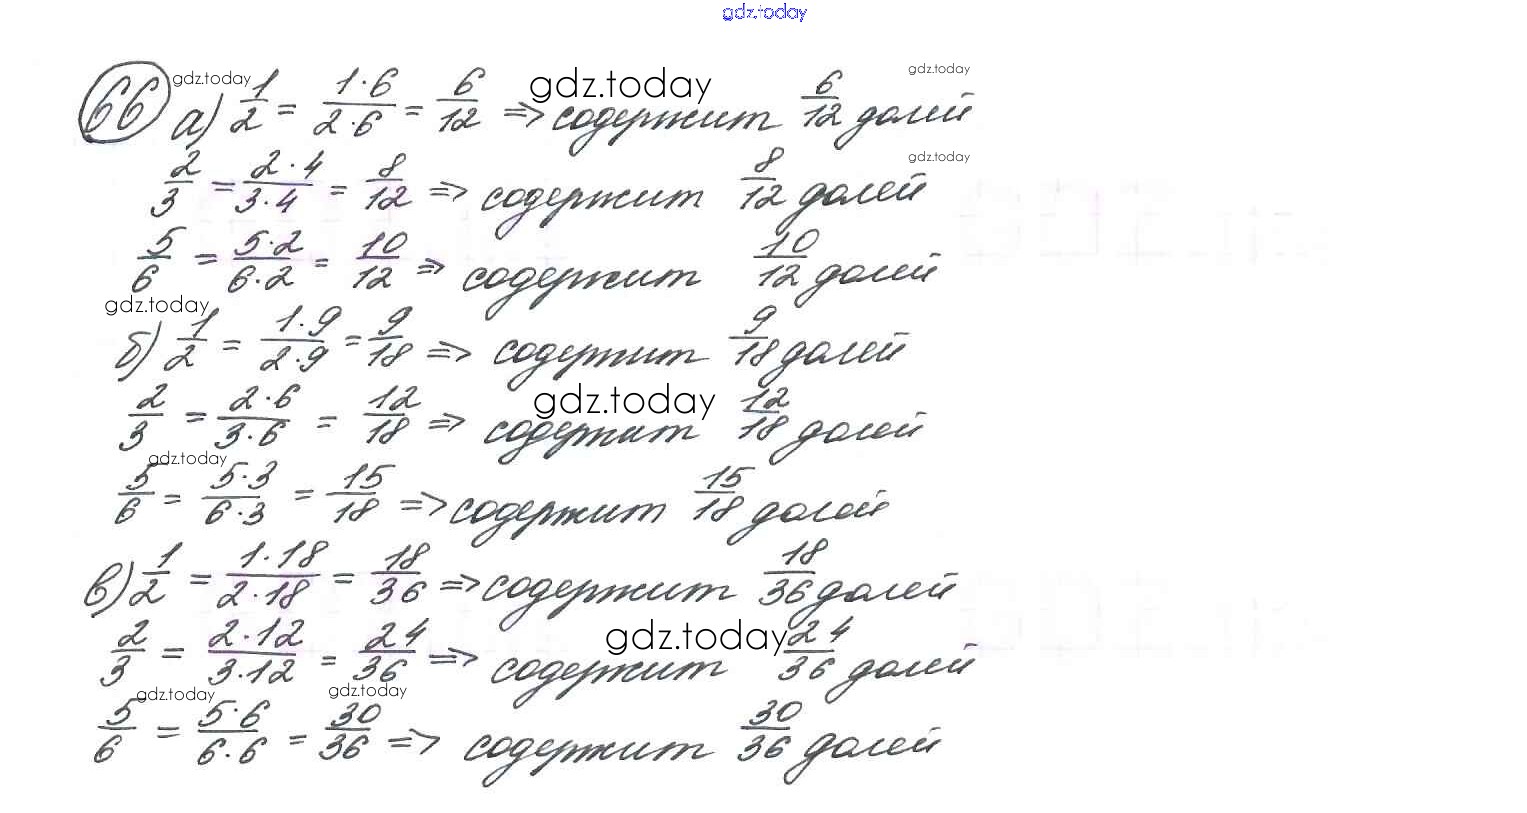 gdz.today
66 gdz.today а) 1/2 = 1·6/2·6 = 6/12 => gdz.today содержит 6/12 долей gdz.today
2/3 = 2·4/3·4 = 8/12 => содержит 8/12 долей gdz.today
5/6 = 5·2/6·2 = 10/12 => содержит 10/12 долей
gdz.today
б) 1/2 = 1·9/2·9 = 9/18 => содержит 9/18 долей
2/3 = 2·6/3·6 = 12/18 => gdz.today содержит 12/18 долей
gdz.today
5/6 = 5·3/6·3 = 15/18 => содержит 15/18 долей
в) 1/2 = 1·18/2·18 = 18/36 => содержит 18/36 долей
2/3 = 2·12/3·12 = 24/36 => gdz.today содержит 24/36 долей
gdz.today gdz.today
5/6 = 5·6/6·6 = 30/36 => содержит 30/36 долей